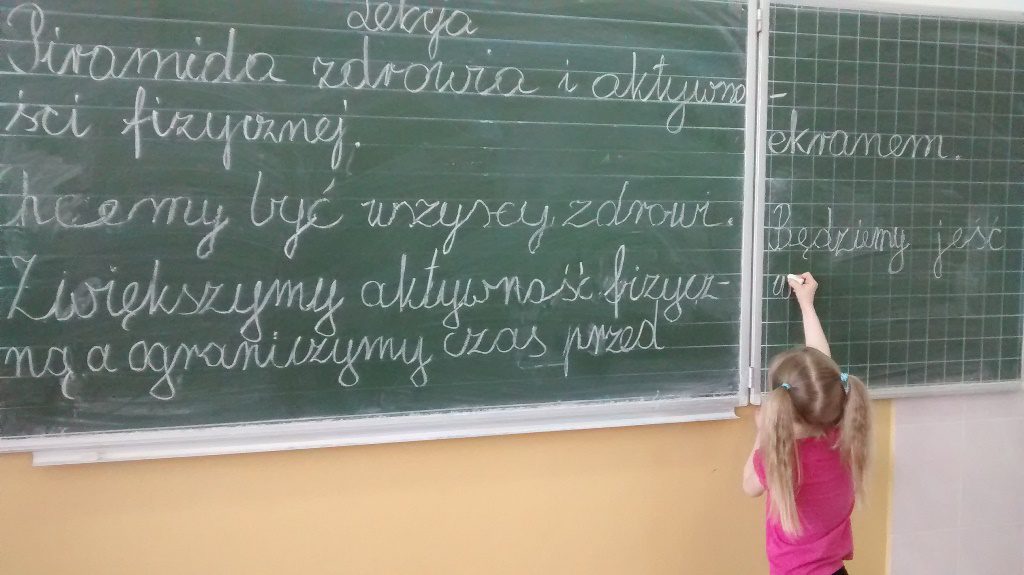 Lekcja
Piramida zdrowia i aktywno-
ści fizycznej.
Chcemy być wszyscy zdrowi.
Zwiększymy aktywność fizycz-
ną a ograniczymy czas przed
ekranem.
Będziemy jeść